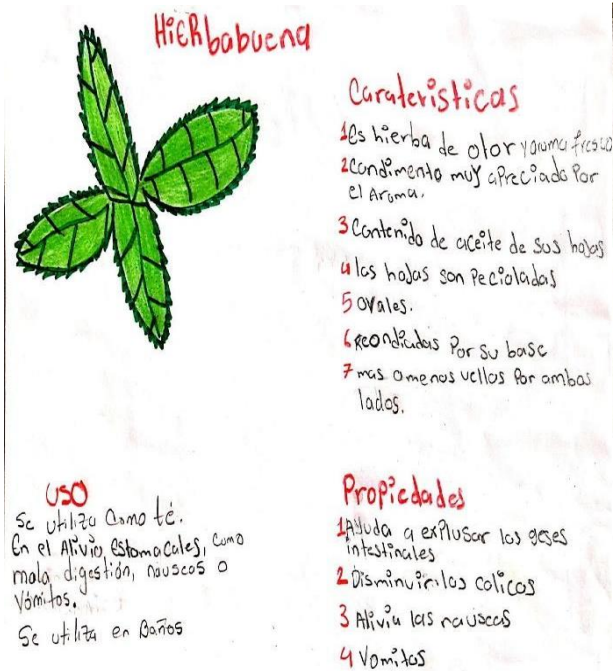 HieRbabuena
Carateristicas
1 Es hierba de olor y aroma fresco
2 Condimento muy apreciado Por
el Aroma.
3 Contenido de aceite de sus hojas
4 las hojas son Pecioladas
5 ovales.
6 Reondiadas Por su base
7 mas o menos vellos Por ambos
lados.
USO
Se utiliza Como té.
En el Alivio, Estomacales, como
mala digestión, nauseas o
Vómitos.
Se utiliza en Baños
Propiedades
1 Ayuda a explusar los geses
intestinales
2 Disminuir los colicos
3 Alivia las nauseas
4 Vomitos